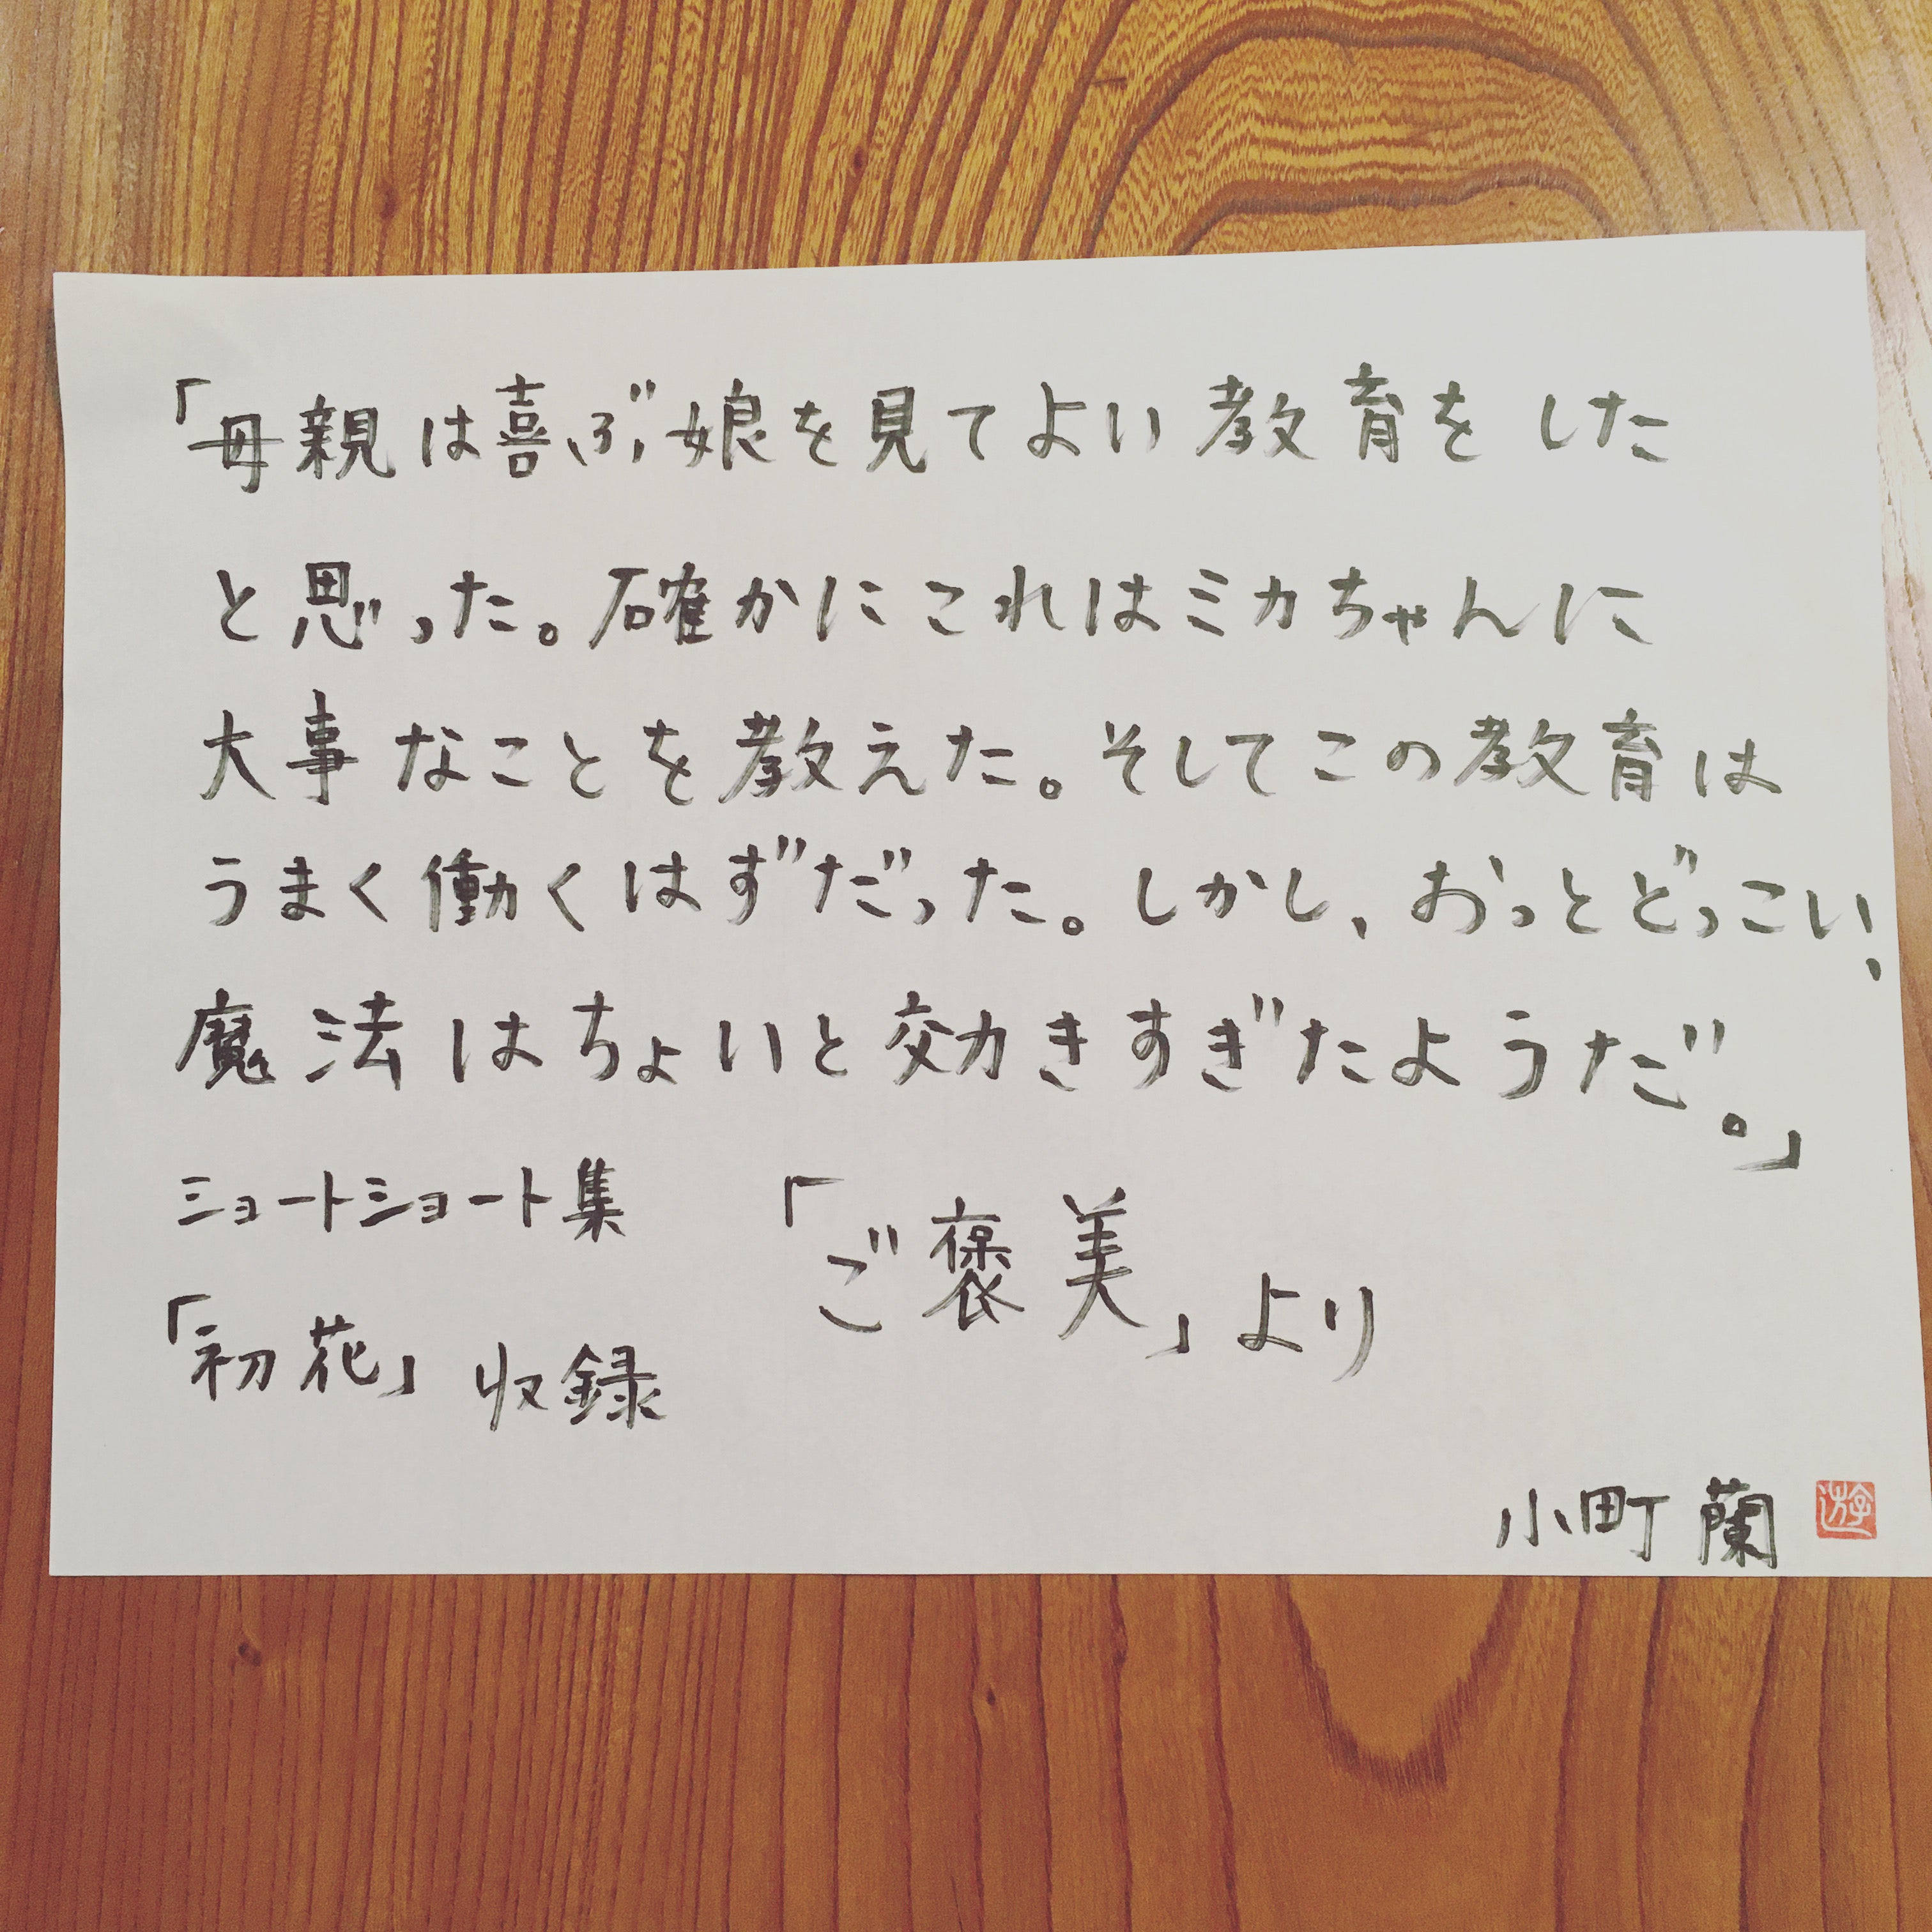 「母親は喜ぶ娘を見てよい教育をした
と思った。確かにこれはミカちゃんに
大事なことを教えた。そしてこの教育は
うまく働くはずだった。しかし、おっとどっこい、
魔法はちょいと効きすぎたようだ。」
ショートショート集
「初花」収録
「ご褒美」より
小町 蘭
遊